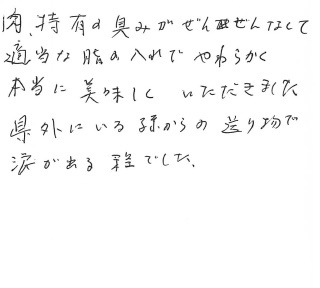 肉、特有の臭みがぜんぜんなくて
適当な脂の入れでやわらかく
本当に美味しくいただきました
県外にいる孫からの送り物で
涙が出る程でした。